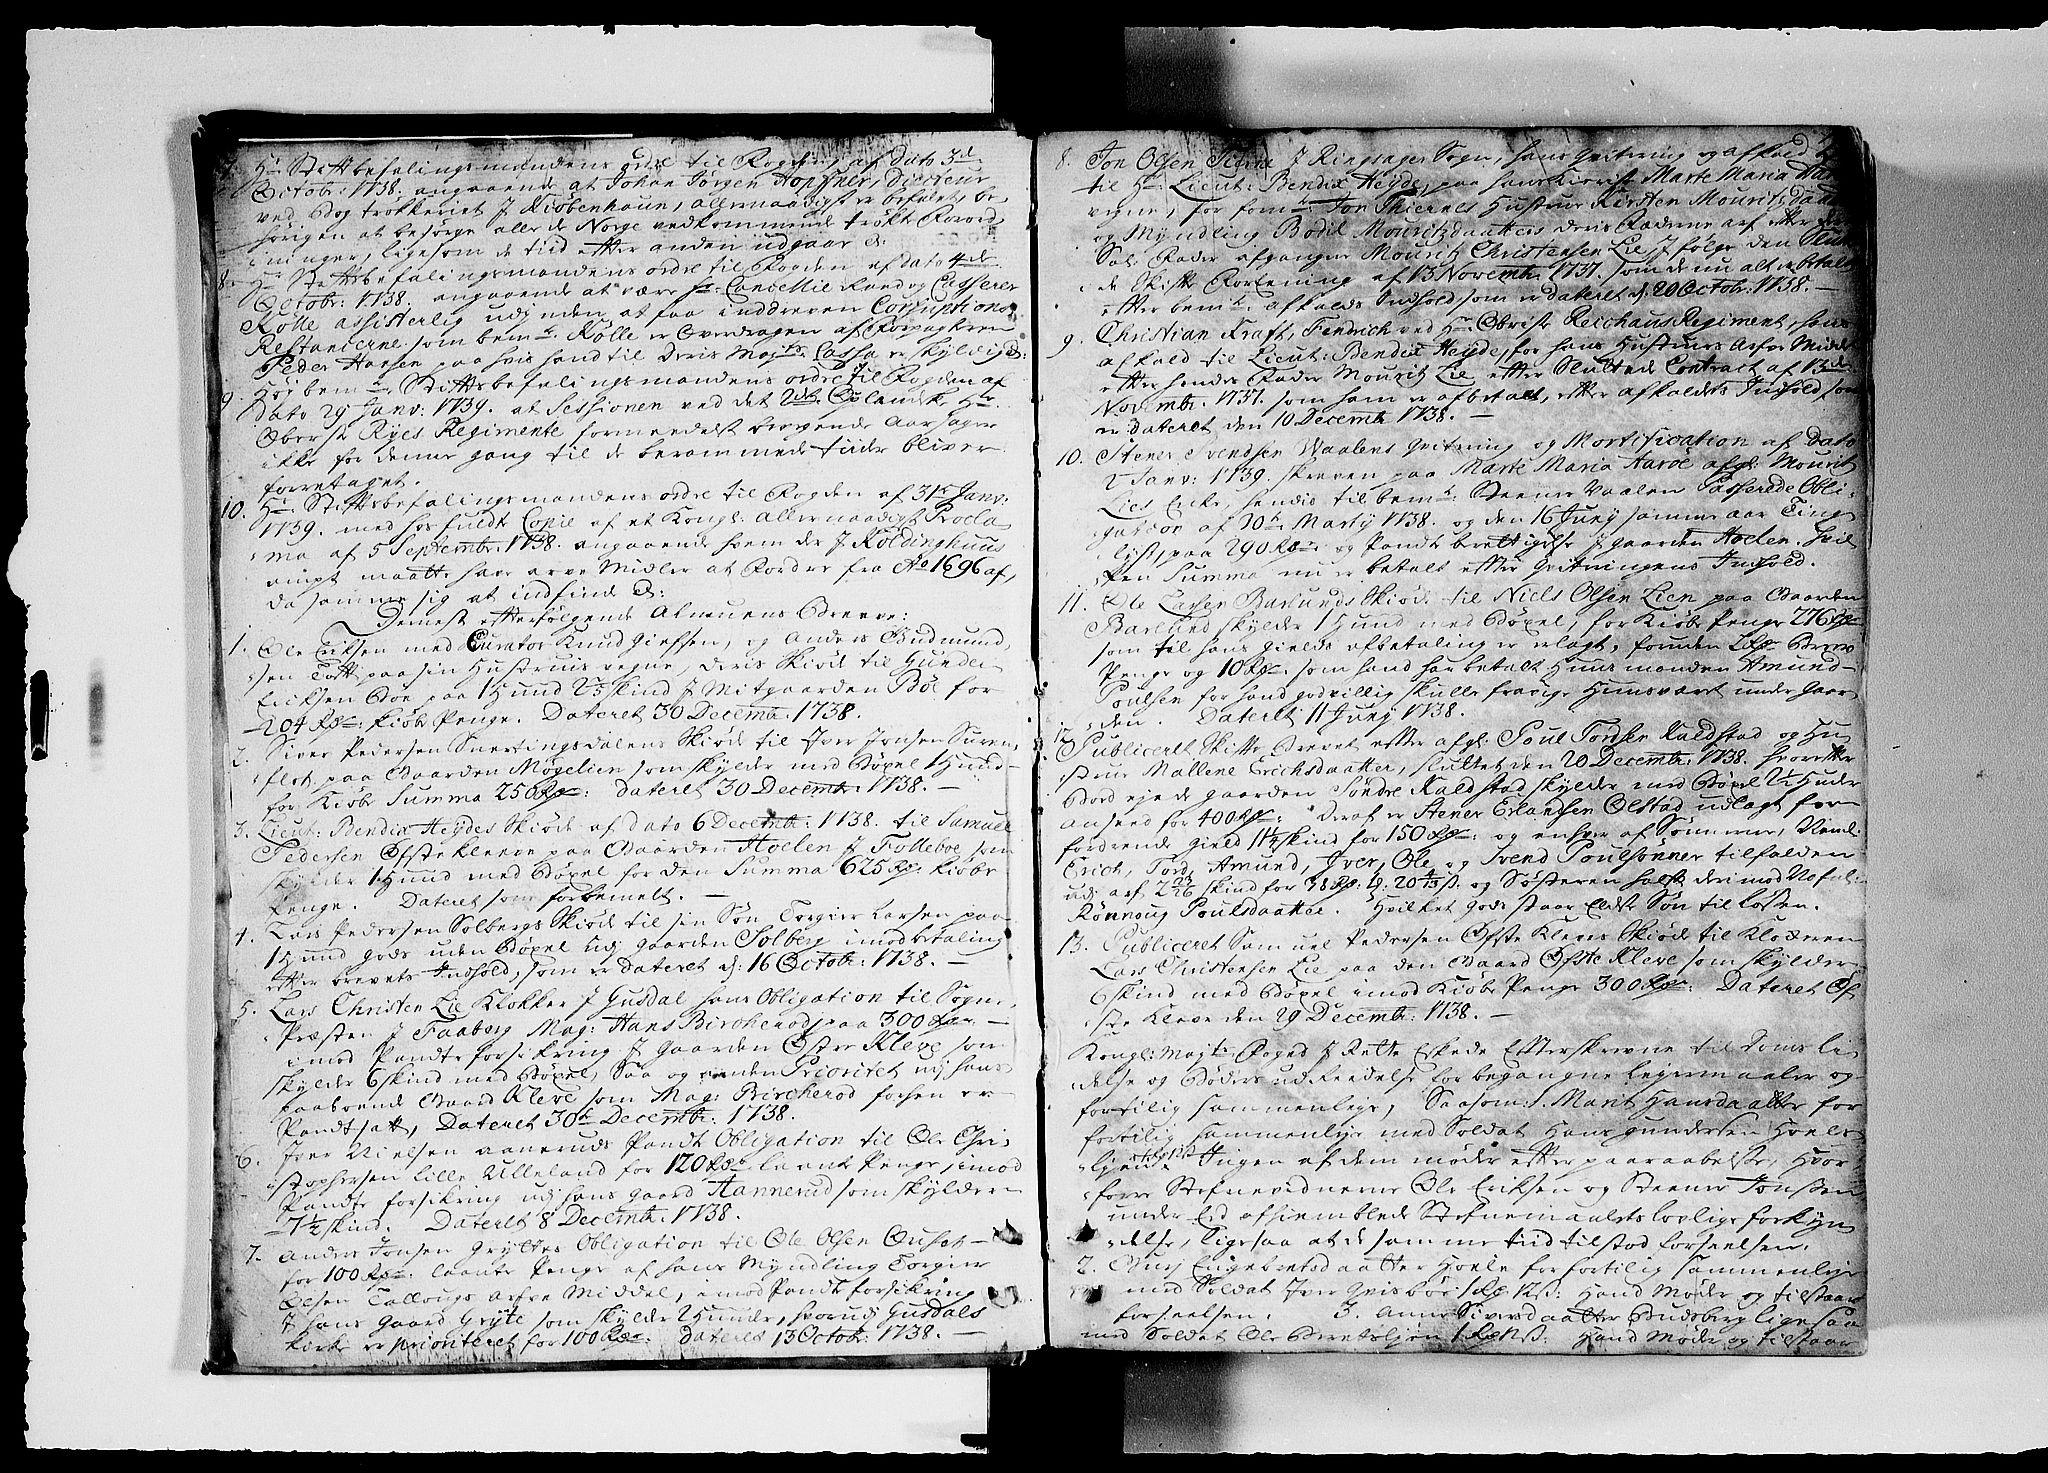 7. Hr Stiftbefalingsmandens ordre til Fogden af Dato 3de
Octobr: 1738. angaaende at Johan Jørgen Höpffner, Directeur
ved Bogtrøkkeriet J Kiøbenhaun, allernaadigst er befalet, be-
hørigen at besørge alle de Norge vedkommende trøkte Forord-
ninger, ligesom de tiid efter anden udgaar
8. Hr Stiftbefalingsmandens ordre til Fogden af Dato 4de
Octobr: 1738. angaaende at være Hr Cancellie Raad og Casserer
Rølle assisterlig udj ynden at faa inddreven Consumptions
Restancerne som bemte Rølle er Overdragen af Forpagteren
Peder Hansen paa hvis hand til Deris Mayts Cassa er skyldig
9. Høybemte Stiftsbefalingsmandens ordre til Fogden af
Dato 29 Janv: 1739. at Sessionen ved det 2det Oplandske Hr
Oberst Ryes Regimente formedelst berørende Aarsager
ikke for denne gang til de berammede tiider bliver
forretaget.
10. Hr Stiftsbefalingsmandens ordre til Fogden af 31te Janv:
1739. med hosfuldt Copie af et Kongl: allernaadigst Procla
ma af 5 Septembr: 1738. angaaende hvem der J Koldinghuus
ampt maatte have arve Midler at fordre fra Ao 1696 af,
da samme sig at indfinde
Dernest efterfølgende Almuens Breeve:
1. Ole Eriksen med Curator Knud Gievsen, og Anders Gudmund
sen Toft paa sin Hustrues vegne, deris Skiøde til
Eriksen Bøe paa 1 Hund 2½ skind J Mitgaarden Bøe for
204 Rdr Kiøbe Penge. Dateret 30 Decembr: 1738.
2. Siver Pedersen Snertingsdalens Skiøde til Iver Jonsen Suren
flot, paa Gaarden Møgelien som skylder med Bøxel 1 Hund
for Kiøbe Summa 250 Rdr: Dateret 30 Decembr: 1738. —
3. Lieut: Bendix Heydes Skiøde af Dato 6 Decembr: 1738. til Samuel
Pedersen Øfste Kleve paa Gaarden Hoelen J Folleboe som
skylder 1 Hund med Bøxel for den Summa 625 Rdr Kiøbe
Penge. Dateret som forbemelt. —
4. Lars Pedersen Solbergs Skiøde til sin Søn Torgier Larsen paa
1 Hund gods uden Bøxel udj gaarden Solberg imod betaling
efter brevets Indhold, som er Dateret d: 16 Octobr: 1738. —
5. Lars Christen Lie Klokker J Gusdal hans Obligation til Sogne
Præsten J Faaberg Mag: Hans Bircherod paa 300 Rdr —
imod Pandte forsikring J gaarden Øfste Kleve som
skylder 6 skind med Bøxel, Saa og anden Prioritet udj hans
paaboende Gaard Kleve som Mag: Bircherod forhen er
Pandtsatt, Dateret 30te Decembr: 1738.
6. Iver Nielsen aaneruds Pandt Obligation til Ole Chri
stophersen Lille Ulleland for 120 Rdr laante Penge, imod
Pandte forsikring udj hans gaard Aannerud som skylder
7½ skind. Dateret 8 Decembr: 1738.
7. Anders Jonsen Gryttes Obligation til Ole Olsen —
for 100 Rdr. laante Penge af hans Myndling Torgier
Olsen Tallougs Arfve Middel, imod Pandt forsikring
J hans gaard Gryte som skylder 2 Hunder, hvorudj Gusdals
Kirke er prioriteret for 100 Rdr: Dateret 13 Octobr: 1738. —
8. Jon Olsen J Ringsager Sogn, hans qvitering og afkald
til Hr Lieut: Bendix Heyde, paa hans Kieriste Marte Maria
vegne, for Jon Thiernes Hustrue Kirsten Mouritzdaatter
og Myndling Bodil Mouritzdaatters deris Fæderne arf efter
Sal: Fader afgangne Mouritz Christensen Lie J følge den Slut
de Skifte Forretning af 13 Novembr: 1737. som de nu alt er betalt
efter bemte afkalds Indhold som er dateret d: 20 Octobr: 1738. —
9. Christian Kraft, Fendrich ved Hr Obriste Reichaus Regiment, hans
afkald til Lieut: Bendix Heyde, for hans Hustrues Arfve Middel
efter hendes Fader Mouritz Lie efter Sluttede Contract af 13de
Novembr: 1737. som ham er afbetalt, efter afkaldets Indhold, som
er dateret den 10 Decembr: 1738. —
10. Stener Svendsen Vaalens qvitering og Mortification af Dato
2 Janv: 1739. skreven paa Marte Maria Aarøe afgl: Mouritz
Lies Enke, hendis til bemte Steener Vaalen Passerede Obli-
gation af 10de Martj 1738. og den 16 Junj samme aar Ting
lyst, paa 290 Rdr og Pandte brettigelse J gaarden Hoelen. hvil
ken Summa nu er betalt efter Qviteringens Indhold.
11. Ole Larsen Barlunds Skiøde til Niels Olsen Lien paa Gaarden
Barlund skylder 1 Hund med Bøxel, for Kiøbe Penge 276 Rdr
som til hans Gields afbetaling er erlagt, foruden 2 Rdr Breve
Penge og 10 Rdr som hand har betalt Huusmanden Amund
Poulsen for hand godvillig skulle fravige Huusværet under Gaar
den. Dateret 11 Junj 1738.
12. Publiceret Skifte Brevet efter afgl: Poul Tordsen Kaldstad og Hu
strue Mallene Erichsdaatter, sluttet den 20 Decembr: 1738. hvorefter
Bord ejede gaarden Søndre Kaldstad skylder med Bøxel 2½ Huder
anseed for 400 Rdr: Deraf er Stener Erlandsen Olstad udlagt for
fordrende gield 11¼ skind for 150 Rdr: og enhver af Sønnerne, Neml:
Erich, Tord, Amund, Iver, Ole og Svend Poulsønner tilfalden
udj arf skind for 38 Rdr 1 ort 20 4/13 s. og Søsteren halft deri mod Nafnl:
Rønnoug Poulsdaatter. Hvilket gods staar Eldste Søn til løsen.
13. Publiceret Samuel Pedersen Øfste Kleves Skiøde til Klokeren
Lars Christensen Lie paa den Gaard Øfste Kleve som skylder
6 skind med Bøxel imod Kiøbe Penge 300 Rdr: Dateret Øf
ste Kleve den 29 Decembr: 1738. —
Kongl: Mayts Foged J Rette Eskede Efterskrevne til Doms li
delse og Bøders udreedelse for begangne leyermaaler og
fortilig sammenleje, Saasom: 1. Marit Hansdaatter for
fortilig sammenleje med Soldat Hans Gundersen Hoels
Ingen af dem møder efter paaraabelse, Hvor
forre Stefnevidnerne Ole Eriksen og Steener Jonsen
under Eed afhiemblede Stefnemaalets lovlige forkyn
delse, ligesaa at de samme tiid tilstod forseelsen.
2. Gurj Engebretsdaatter Hoele for fortilig sammenleje
med Soldat Iver Qvisbør 1 Rdr 12 s: Hand Møder og tilstaar
forseelsen. 3. Anne Siversdaatter Budsberg ligesaa
med Soldat Ole 1 Rdr 12 s: Hand Møder og tilstaar